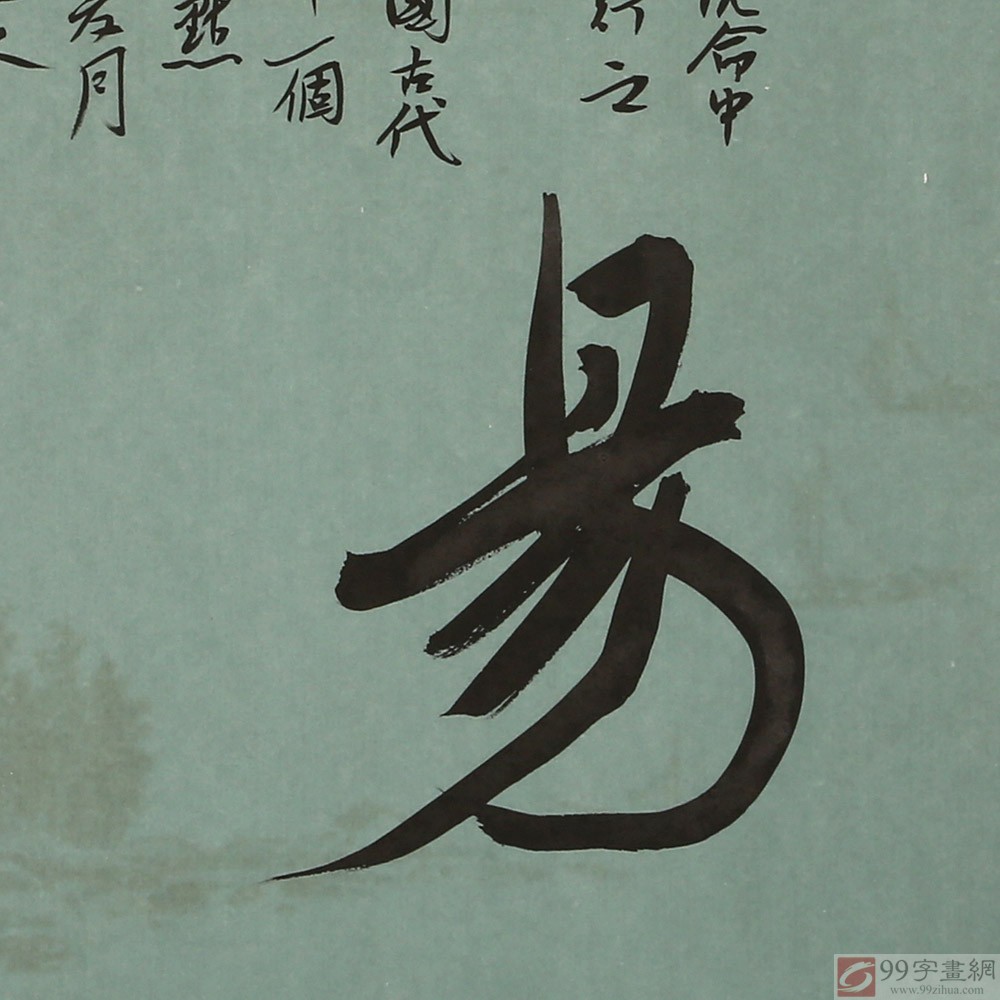 命中
行之
國古代
一個
點
友同
易
99字畫網
www.99zihua.com